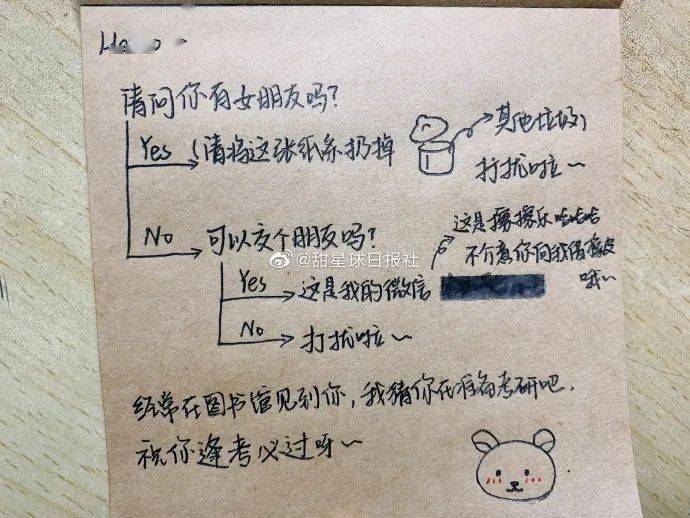 请问你有女朋友吗?
Yes 请将这张纸条扔掉
其他垃圾
打扰啦~
No 可以交个朋友吗?
Yes 这是我的微信
这是擦擦乐哈哈哈
不介意你向我借橡皮
哦~
No 打扰啦~
经常在图书馆见到你,我猜你在准备考研吧.
祝你逢考必过呀~
@甜星球日报社